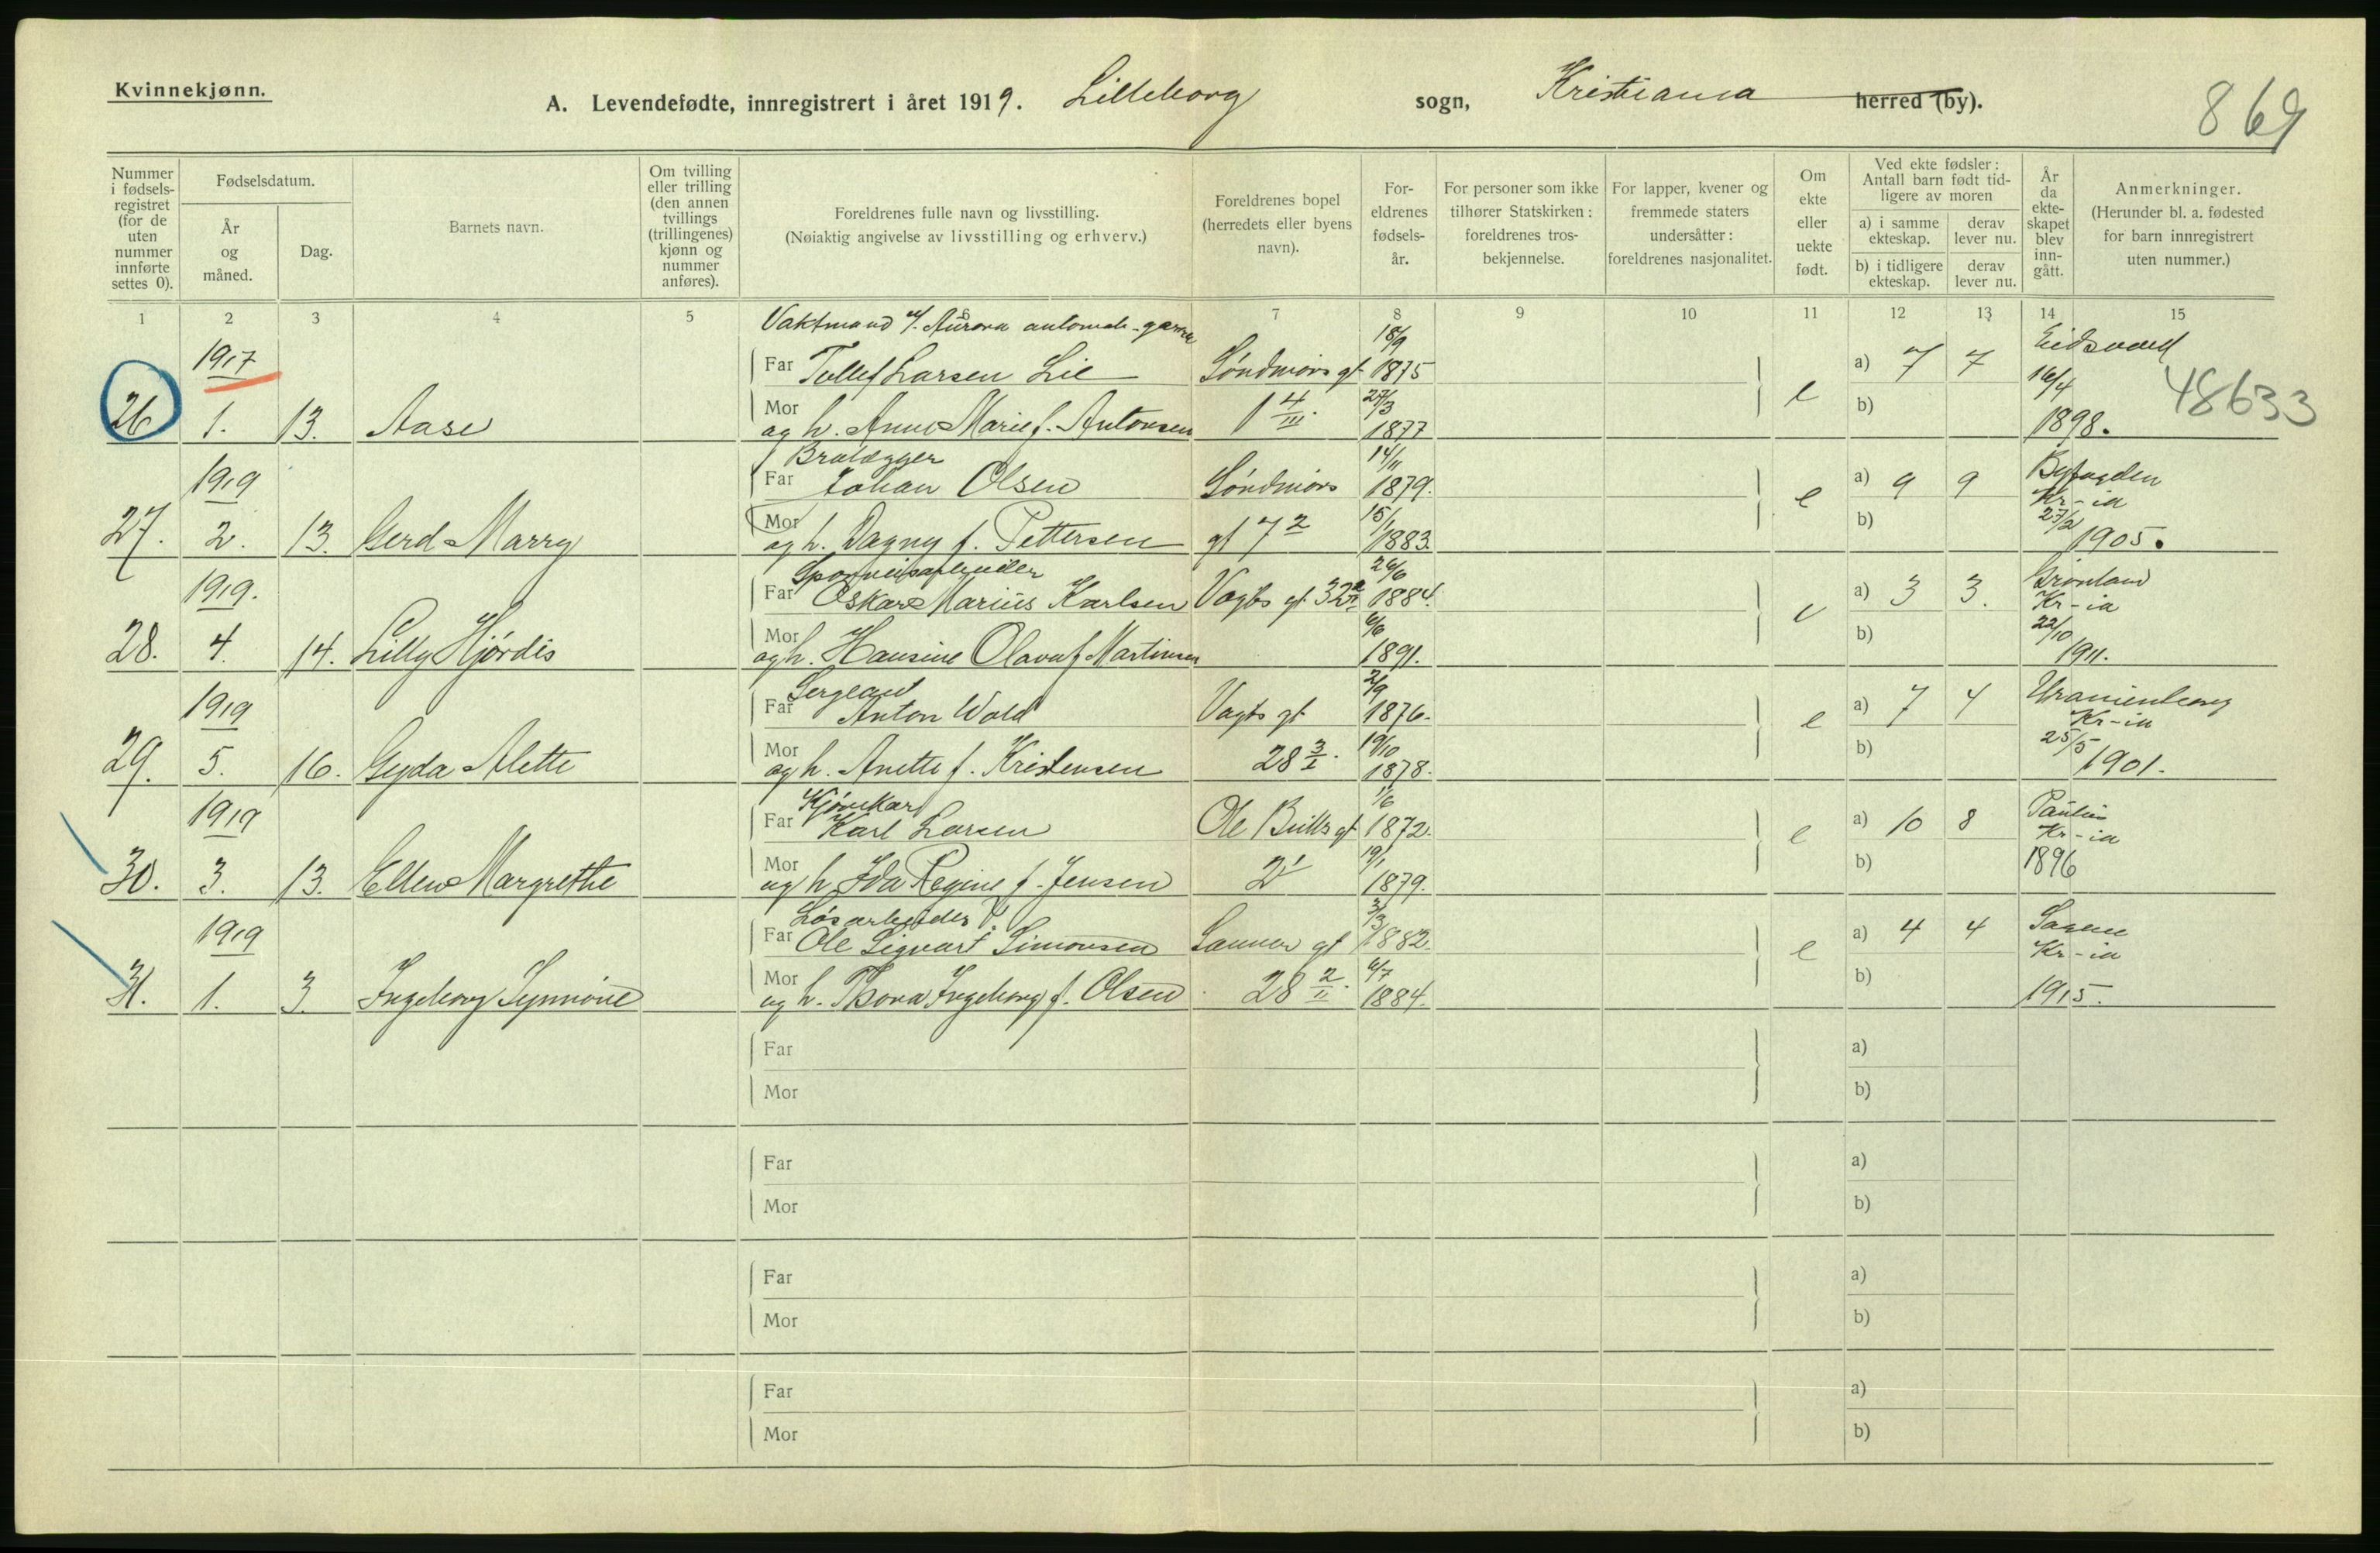 Kvinnekjønn.
A. Levendefødte, innregistrert i året 1919. Lilleborg sogn, Kristiania herred (by).
869
Nummer i fødsels-registret (for de uten nummer innførte settes 0).
Fødselsdatum.
År og måned.
Dag.
Barnets navn.
Om tvilling eller trilling (den annen tvillings (trillingenes) kjønn og nummer anføres).
Foreldrenes fulle navn og livsstilling.
(Nøiaktig angivelse av livsstilling og erhverv.)
Foreldrenes bopel (herredets eller byens navn).
For-eldrenes fødsels-år.
For personer som ikke tilhører Statskirken: foreldrenes tros-bekjennelse.
For lapper, kvener og fremmede staters undersåtter: foreldrenes nasjonalitet.
Om ekte eller uekte født.
Ved ekte fødsler: Antall barn født tid-ligere av moren
a) i samme ekteskap.
derav lever nu.
b) i tidligere ekteskap.
derav lever nu.
År da ekte-skapet blev inn-gått.
Anmerkninger.
(Herunder bl. a. fødested for barn innregistrert uten nummer.)
1 2 3 4 5 7 8 9 10 11 12 13 14 15
Vaktmand
1917 Far Tollef Larsen Lie Søndmørs gt 18/9 1875 a) 7 7 Eidsvold 16/4
26 1. 13. Aase Mor og h. Anne Marie f. Antonsen 1 4/III. 27/3 1877 e b) 1898.
48633
1919 Far Johan Olsen Søndmørs 14/11 1879. a) 9 9 Byfogden Kr-ia
27. 2. 13. Gerd Marry Mor og h. Dagny f. Pettersen gt 7 2 15/1 1883. e b) 27/2 1905.
1919. Far Oskar Marius Karlsen Vogts gt 32 1884. a) 3 3. Grønland Kr-ia
28. 4. 14. Lilly Hjørdis Mor og h. Hansine Olava f Martinsen 6/6 1891. e b) 22/10 1911.
Sergeant
1919 Far Anton Wold Vogts gt 2/9 1876. a) 7 4 Uranienborg Kr-ia
29. 5. 16. Gyda Alette Mor og h. Anette f. Kristensen 28 3/I. 19/10 1878. e b) 25/5 1901.
1919 Far Karl Larsen Ole Bulls gt 1/6 1872. a) 10 8 Paulus Kr-ia
30. 3. 13. Ellen Margrethe Mor og h Ida Regine f. Jensen 2 1 19/1 1879. e b) 1896
Løsarbeider
1919 Far Ole Sigvart Simonsen Sanner gt 3/3 1882. a) 4 4 Sagene Kr-ia
31. 1. 3. Ingeborg Synnøve Mor og h. Thora Ingeborg f. Olsen 28 2/II. 6/7 1884. e b) 1915.
Far a)
Mor b)
Far a)
Mor b)
Far a)
Mor b)
Far a)
Mor b)